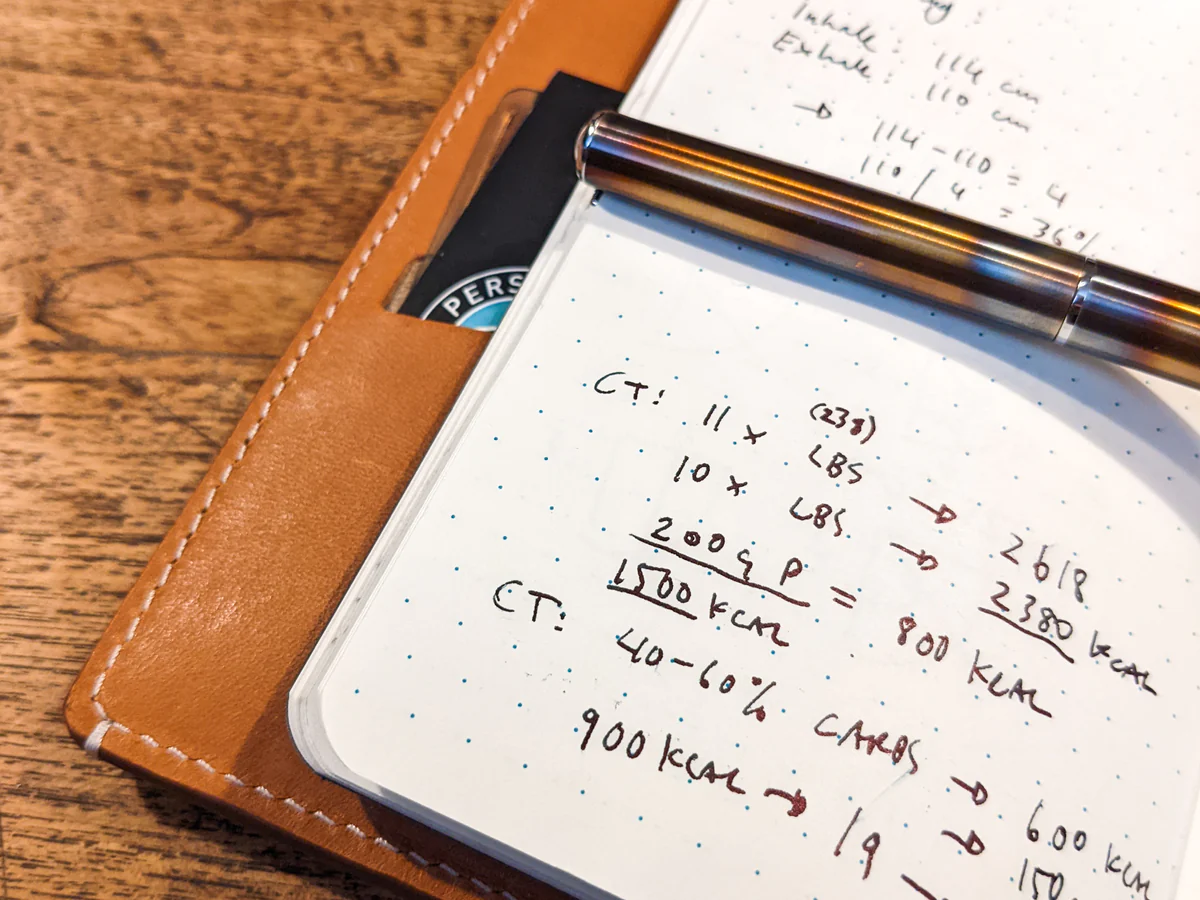 Inhale: 114 cm
Exhale: 110 cm
→ 114 - 110 = 4
110 / 4 = 36%
PERS
CT: 11 x (238) LBS → 2618
10 x LBS → 2380 KCAL
200 g P = 800 KCAL
1500 KCAL
CT: 40-60% CARBS → 600 KCAL
900 KCAL → 1g → 150